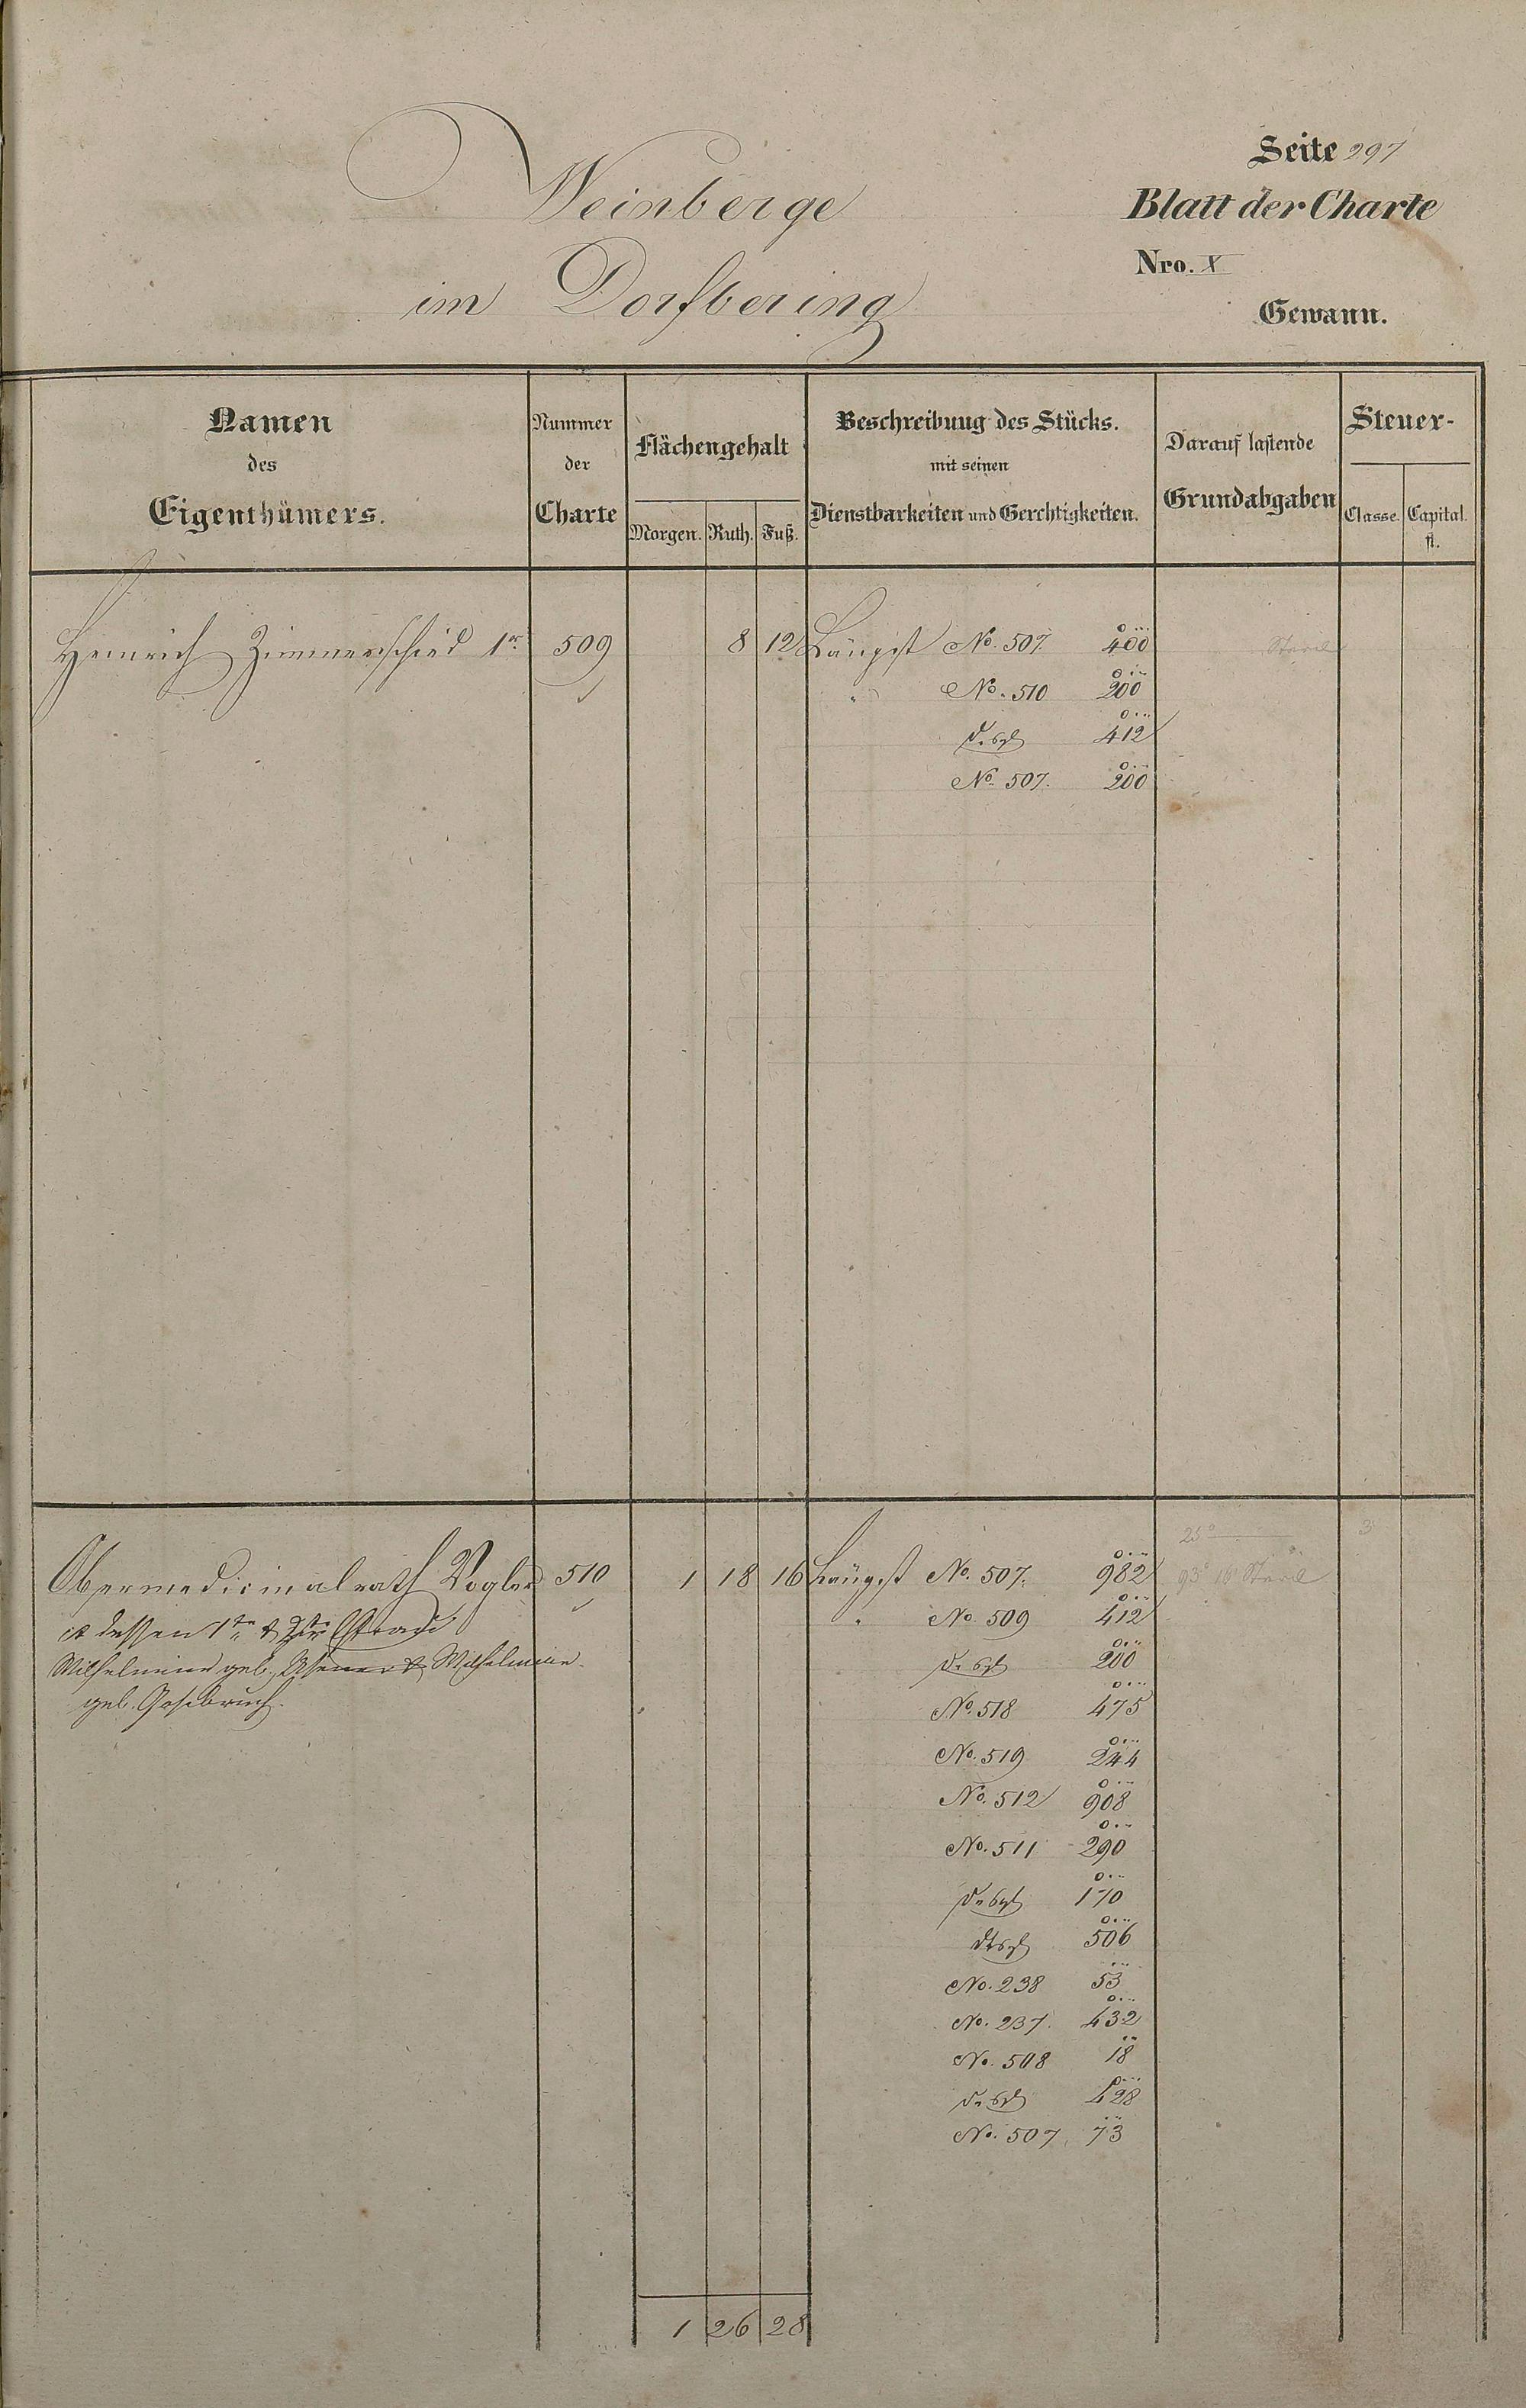 Seite 297
Weinberge
Blatt der Charte
Nro. X
im Dorfbering
Gewann.
Namen
des
Eigenthümers.
Nummer
der
Charte
Flächengehalt
Morgen. Ruth. Fuß.
Beschreibung des Stücks.
mit seinen
Dienstbarkeiten und Gerechtigkeiten.
Darauf lastende
Grundabgaben
Steuer-
Classe. Capital.
fl.
Heinrich Zimmerschied 1r. 509 8 12 Längst No. 507. 400
" No. 510 200
desgl 412
No. 507. 200
Obermedicinalrath Vogler 510 1 18 16 Längst No. 507. 982
dessen 1te & 2te
" No. 509 412
Wilhelmine geb. & Wilhelmine
desgl 200
geb.
No. 518 475
No. 519 244
No. 512 908
No. 511 290
desgl 170
desgl 506
No. 238 53
No. 237. 432
No. 508 18
desgl 428
No. 507. 73
25°
3
1 26 28